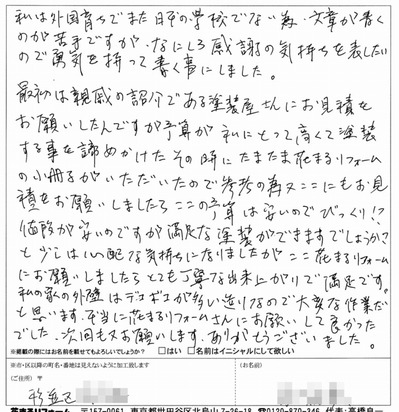 私は外国育ちでまた日本の学校でない為、文章が書く
のが苦手ですが、なにしろ感謝の気持ちを表したい
ので勇気を持って書く事にしました。
最初は親戚の紹介である塗装屋さんにお見積を
お願いしたんですが予算が私にとって高くて塗装
する事を諦めかけたその時にたまたま花まるリフォーム
の小冊子がいただいたので参考の為ここにもお見
積をお願いしましたらここの予算は安いのでびっくり!?
値段が安いのですが満足な塗装ができますでしょうか?
と少しは心配な気持ちになりましたがここ花まるリフォーム
にお願いしましたらとても丁寧な出来上がりで満足です。
私の家の外壁はデコボコが多い造りなので大変な作業だ
と思います。本当に花まるリフォームさんにお願いして良かった
でした。次回も又お願いします。ありがとうございました。
※掲載の際にはお名前を載せてもよろしいでしょうか? □はい □名前はイニシャルにして欲しい
※市・区以降の町名・番地は見えないように加工致します
(ご住所) 〒 (お名前)
杉並区
花まるリフォーム 〒157-0061 東京都世田谷区北烏山7-26-18 ☎0120-870-346 代表:高橋良一